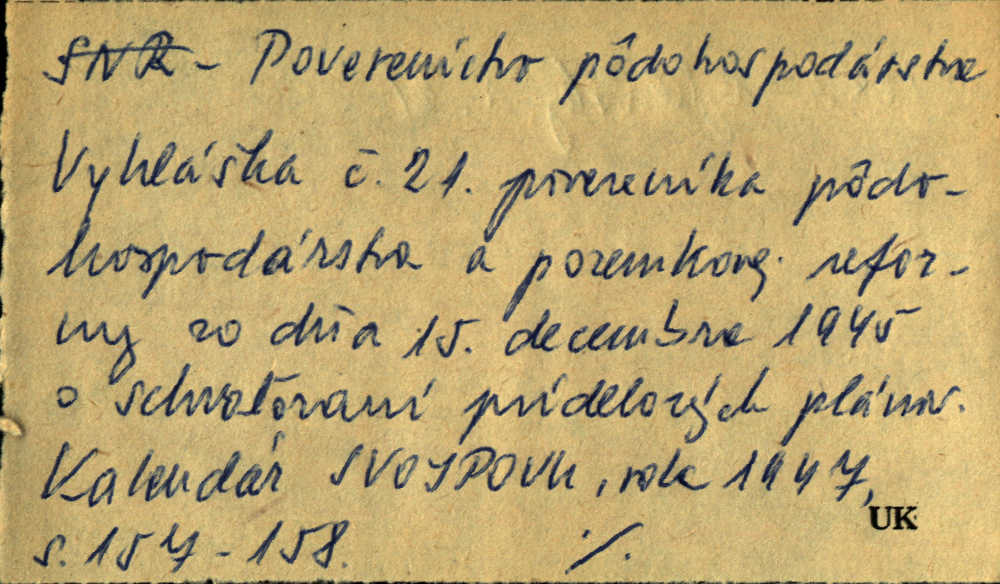 SNR - Poverenictvo pôdohospodárstva
Vyhláška č. 21. poverenika pôdo-
hospodárstva a pozemkovej refor-
my zo dňa 15. decembra 1945
o schvaľovaní prídelových plánov.
Kalendár SVOJPOVH, rok 1947,
s. 157-158. ·/.
UK